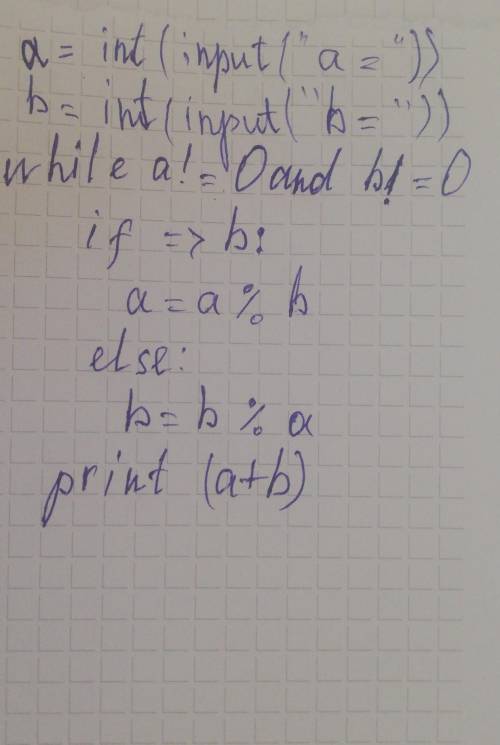 a = int(input("a = "))
b = int(input("b = "))
while a! = 0 and b! = 0
if => b:
a = a % b
else:
b = b % a
print (a+b)